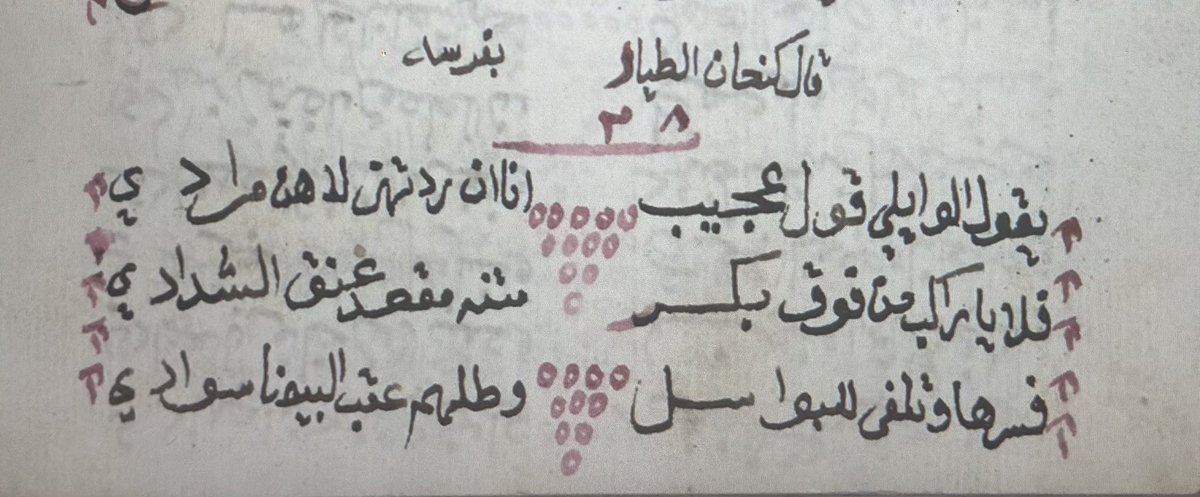 قال كنعان الطيار بفرساه
٣٨
يقول الوايلي قول عجيب انا ان ردتهن لاهن مرادي
قلا يا راكب من فوق بكر متنه مقصد عنق الشدادي
فسرها وتلفى للبواسل وطلهم عقب البيوتا سوادي